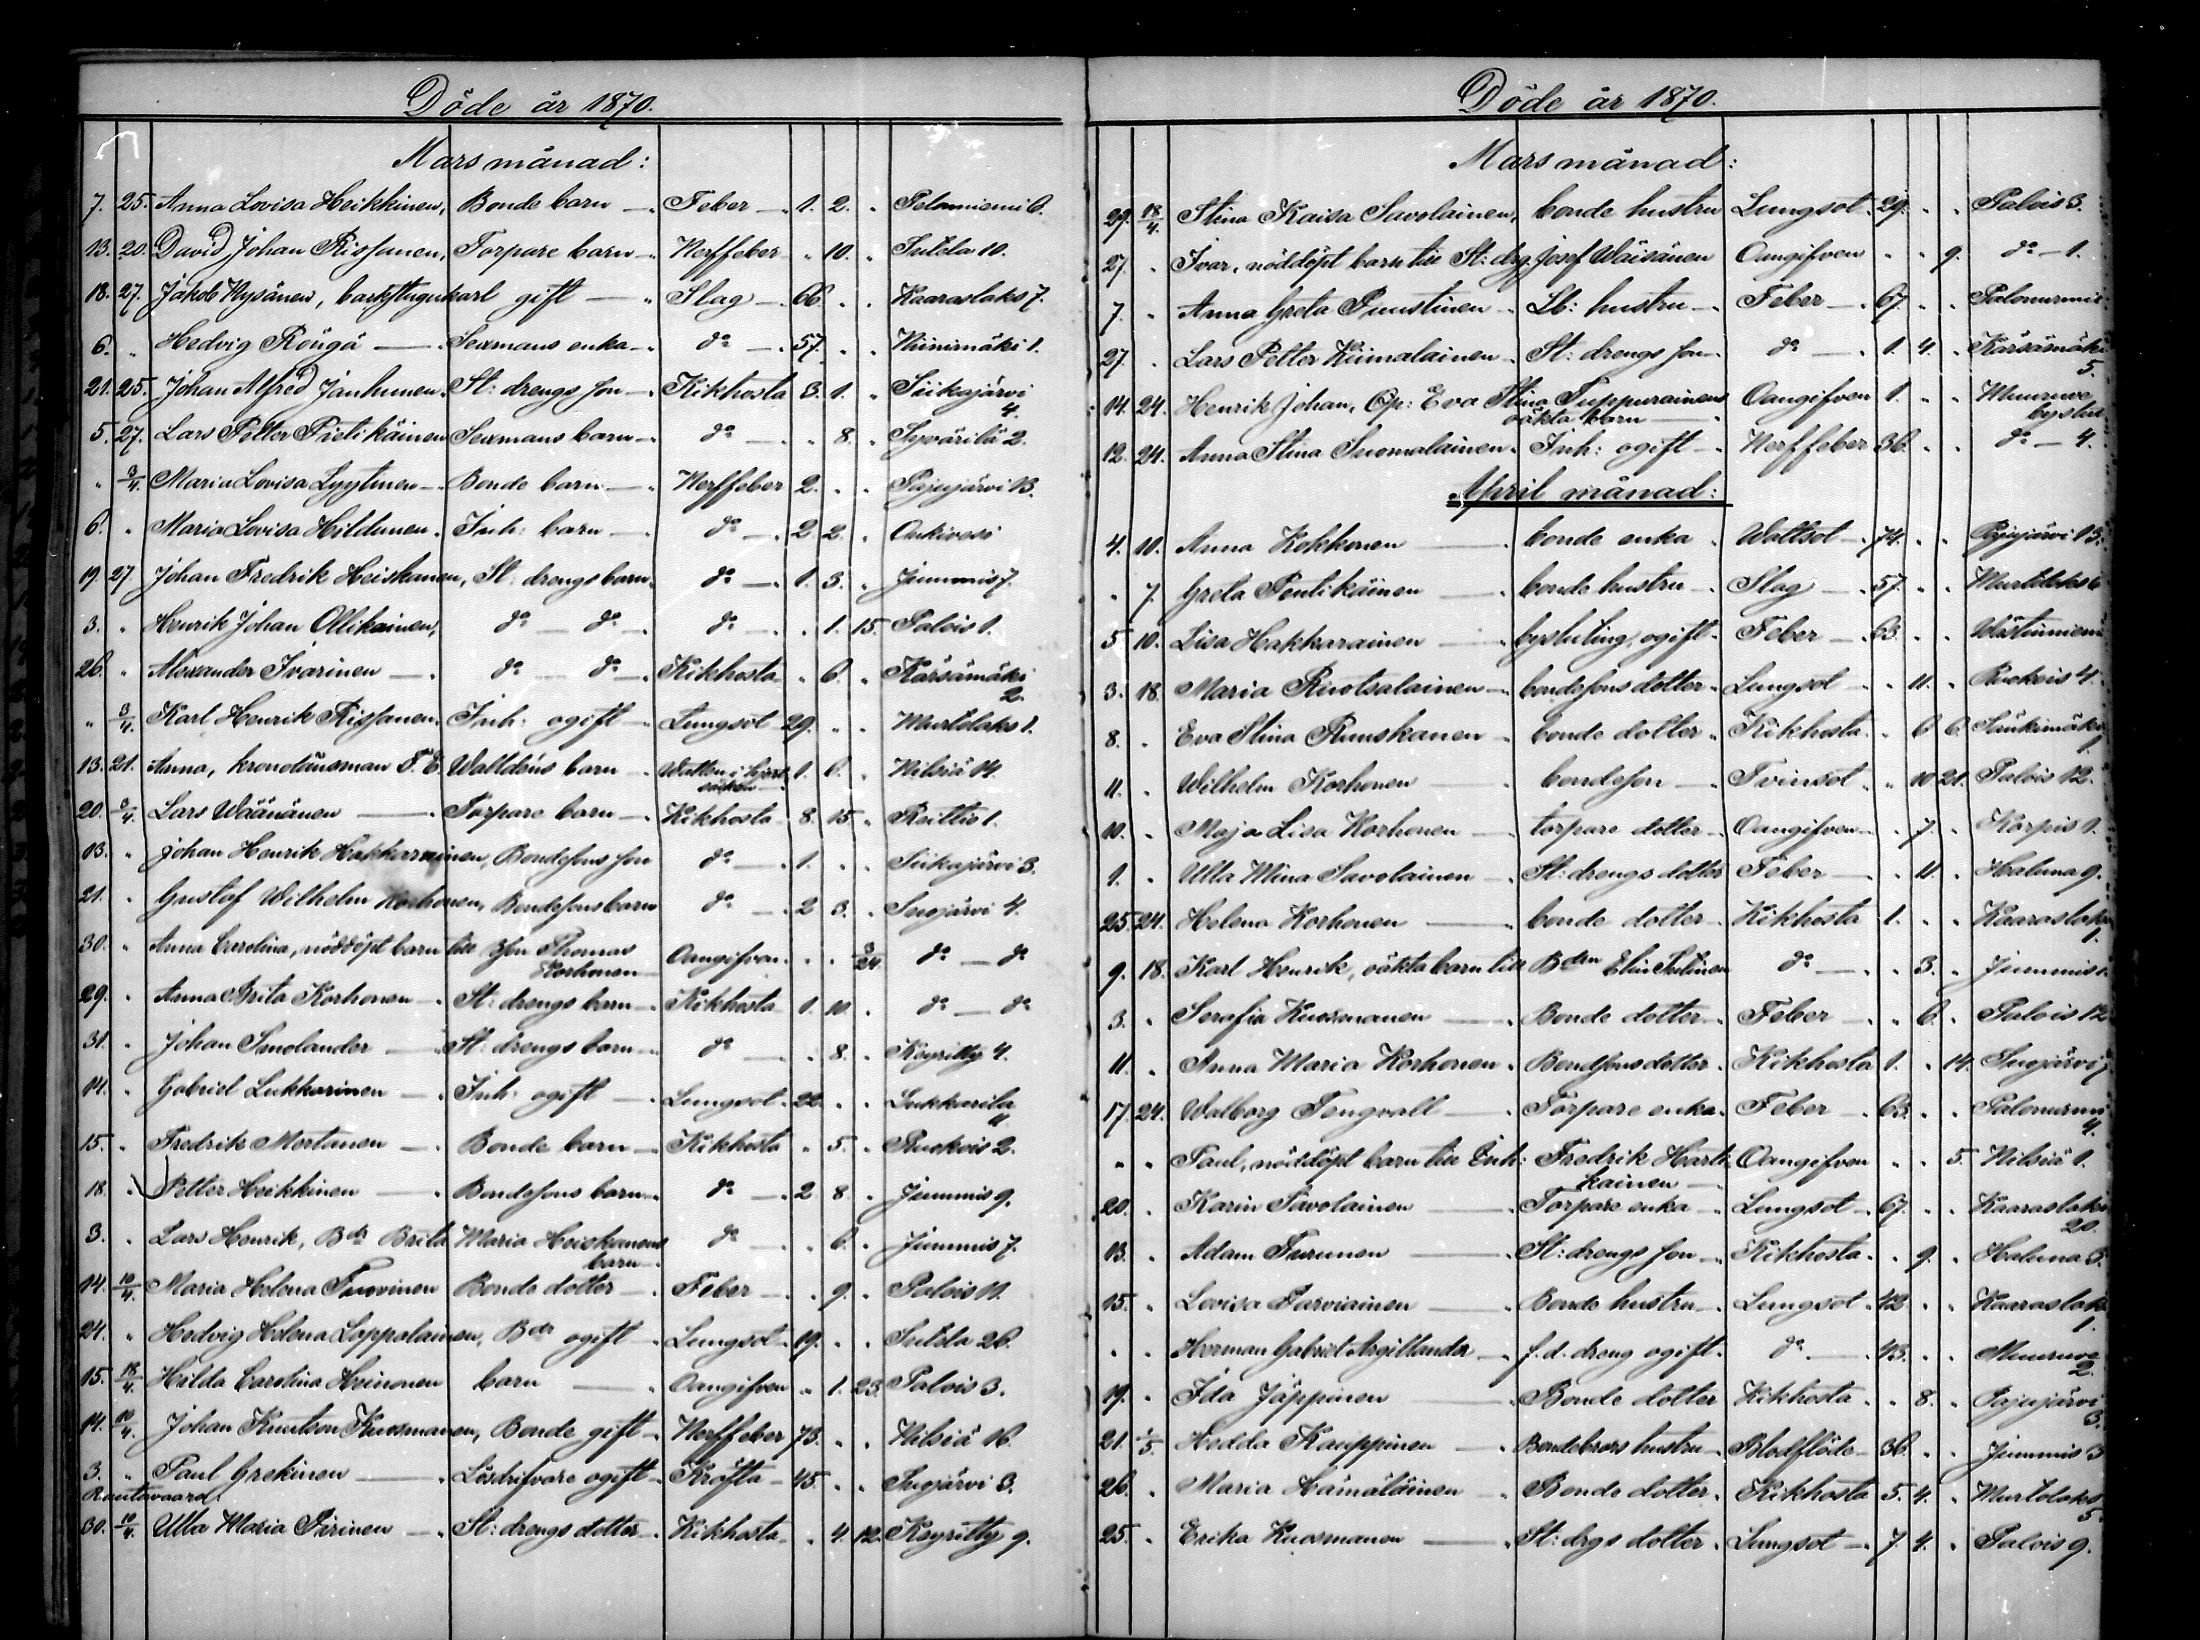 Döde år 1870.
Mars månad:
7. 25. Anna Lovisa Heikkinen, Bonde barn — Feber — 1. 2. " Pelomiemi 6.
13. 20. David Johan Rissanen, Torpare barn — Nerffeber " 10. " Sutela 10.
18. 27. Jakob Nysänen, backstugukarl gift — Slag — 66. " " Kaaraslaks 7.
6. " Hedvig Röngä — Sexmans enka — do — 57. " " Niinimäki 1.
21. 25. Johan Alfred Janhunen St: drengs son — Kikhosta 3. 1. " Siikajärvi 4.
5. 27. Lars Petter Pietikäinen Sexmans barn — do — " 8. " Syvärilä 2.
" 3/4. Maria Lovisa Lyytinen — Bonde barn — Nerffeber 2. " " Pajujärvi 13.
6. " Maria Lovisa Hildunen. Inh: barn — do — 2. 2. " Ankivesi
19. 27. Johan Fredrik Heiskanen, St: drengs barn do — 1. 3. " Jimmis 7.
3. " Henrik Johan Ollikainen, do — do — do — " 1. 15. Palois 1.
26. " Alexander Ivarinen — do do — Kikhosta " 6. " Kärsämäki 2.
" 3/4. Karl Henrik Rissanen. Inh: ogift — Lungsot 29. " " Murtolaks 1.
13. 21. Anna, kronolänsman F. E. Walldéns barn — Watten i hjertsäcken 1. 6. " Nilsiä 14.
20. 3/4. Lars Wäänänen — Torpare barn — Kikhosta 8. 15 " Reittio 1.
13. " Johan Henrik Hakkarainen, Bondesons son do — 1. " " Siikajärvi 3.
21. " Gustaf Wilhelm Korhonen, Bondesons barn do — 2 3. " Sugjärvi 4.
30. " Anna Carolina, nöddöpt barn till Thomas Korhonen Oangifven " " 3/24. do — do
29. " Anna Brita Korhonen — St: drengs barn — Kikhosta 1. 10. do — do
31. " Johan Smolander — St: drengs barn — do — " 8. " Keyritty 4.
14. " Gabriel Lukkarinen — Inh: ogift — Lungsot 22. " " Lukkarila 4
15. " Fredrik Mertanen — Bonde barn — Kikhosta " 5. " Ruokois 2.
18. " Petter Heikkinen — Bondesons barn do — 2 8. " Jimmis 9.
3. " Lars Henrik, Bdr Brita Maria Heiskanens barn do — " 6. " Jimmis 7.
14. 10/4. Maria Helena Tuovinen Bonde dotter — Feber — " 9. " Palois 11.
24. " Hedvig Helena Lappalainen, Bdr ogift — Lungsot 19. " " Sutela 26.
15. 18/4. Hilda Carolina Heinonen barn — Oangifven " 1. 23. Palois 3.
14. 10/4. Johan Knutson Kuosmanen, Bonde gift — Nerffeber 73. " " Nilsiä 16.
3. " Paul Grekinen — Lösdrifvare ogift — Kräfta — 45. " " Sugjärvi 3.
Rautavaara:
30. 10/4. Ulla Maria Pirinen — St: drengs dotter — Kikhosta " 4. 12. Keyritty 9.
Döde år 1870.
Mars månad:
29. 18/4. Stina Kaisa Savolainen, bonde hustru Lungsot 29. " " Palois 3.
27. " Ivar, nöddöpt barn till St: drg Josef Wäisänen Oangifven " " 9. do — 1.
7. " Anna Greta Puustinen — Lb: hustru — Feber — 67. " " Palonurmi
27. " Lars Petter Kiimalainen — St: drengs son — do — 1. 4. " Kärsämäki 5.
14. 24. Henrik Johan, Qp: Eva Stina Tuppurainens oäkta barn Oangifven 1. " Muuruve
12. 24. Anna Stina Suomalainen. Inh: ogift — Nerffeber 36. " " do — 4.
April månad:
4. 10. Anna Kokkonen — bonde enka Wattsot — 74. " " Pajujärvi 13.
" 7. Greta Pentikäinen — bonde hustru — Slag — 57. " " Murtolaks 6
5 10. Lisa Hakkarainen — byshuting, ogift Feber — 63. " " Wästinniemi
3. 18. Maria Ruotsalainen — bondesons dotter Lungsot — " 11. " Ruokois 4.
8. " Eva Stina Ruuskanen — bonde dotter Kikhosta " 6 6. Sänkimäki 1
11. " Wilhelm Korhonen — bondeson — Tvinsot " 10 21. Palois 12.
10. " Maja Lisa Korhonen — torpare dotter — Oangifven " 7. " Korpis 1.
1. " Ulla Mina Savolainen — St: drengs dotter Feber — " 11. " Haluna 9.
25. 24. Helena Korhonen — bonde dotter Kikhosta 1. " " Kaaraslaks 1.
9. 18. Karl Henrik, oäkta barn till Bdrn Elin Sutinen do — " 3. " Jimmis
3. " Serafia Kuosmanen — Bonde dotter Feber — " 6. " Palois 12
11. " Anna Maria Korhonen Bondsons dotter Kikhosta 1. " 14. Sugjärvi
17. 24. Walborg Tengvall — Torpare enka Feber — 63. " " Palonurmi 4.
" " Paul, nöddöpt barn till Inh: Fredrik Hartikainen — Oangifven " " 5. Nilsiä 1.
20. " Karin Savolainen — Torpare enka — Lungsot 67. " " Kaaraslaks 20.
13. " Adam Turunen — St: drengs son — Kikhosta " 9. " Haluna 5.
15. " Lovisa Parviainen — Bonde hustru — Lungsot 42 " " Kaaraslaks 1.
" " Herman Gabriel Argillander — f. d. dreng ogift. do — 43. " " Muuruve 2.
19. " Ida Jäppinen — Bonde dotter Kikhosta " 8. " Pajujärvi 3.
21. 1/5. Hedda Kauppinen — Bondebrors hustru Blodflöde — 36. " " Jimmis 3
26. " Maria Hämäläinen — Bonde dotter Kikhosta 5. 4. " Murtolaks 5.
25. " Erika Kuosmanen — St: drgs dotter Lungsot — 7 4. " Palois 9.